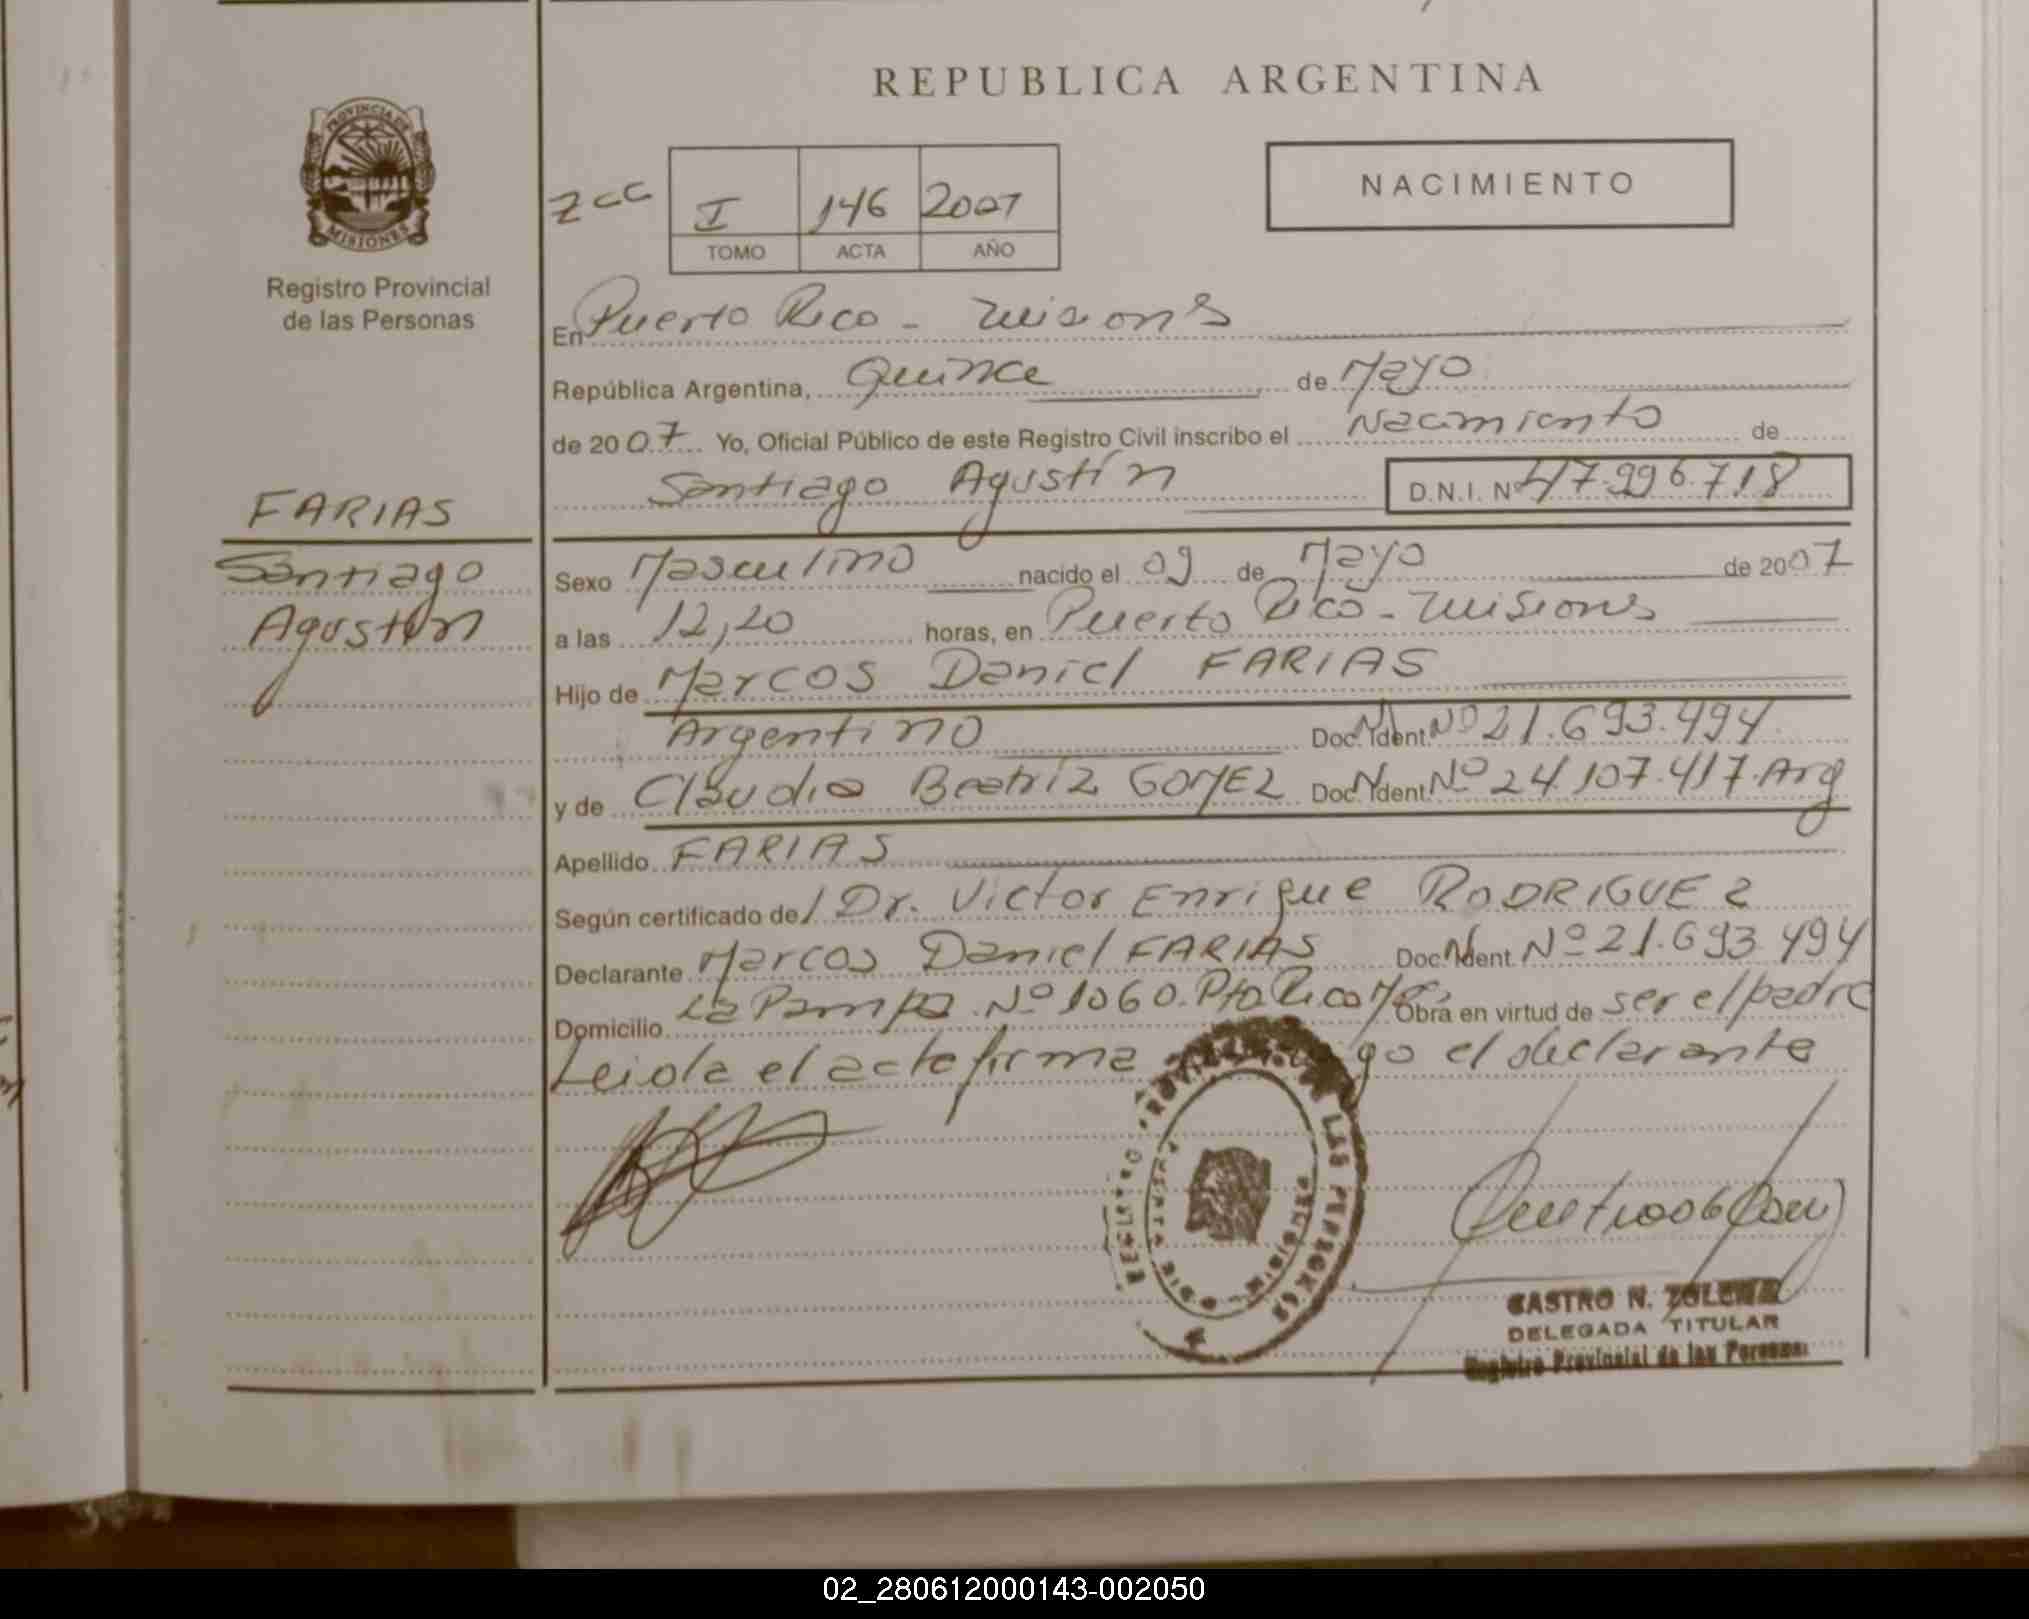 REPUBLICA ARGENTINA
PROVINCIA DE
MISIONES
Registro Provincial
de las Personas
NACIMIENTO
I 146 2007
TOMO ACTA AÑO
En Puerto Rico - Misiones
República Argentina, Quince de Mayo
de 2007 Yo, Oficial Público de este Registro Civil inscribo el Nacimiento de
Santiago Agustín D.N.I. Nº 47.996.718
FARIAS
Santiago
Agustín
Sexo Masculino nacido el 09 de Mayo de 2007
a las 12,20 horas, en Puerto Rico - Misiones
Hijo de Marcos Daniel FARIAS
Argentino Doc. Ident. Nº 21.693.494
y de Claudia Beatriz GOMEZ Doc. Ident. Nº 24.107.417. Arg
Apellido FARIAS
Según certificado del Dr. Victor Enrique RODRIGUEZ
Declarante Marcos Daniel FARIAS Doc. Ident. Nº 21.693.494
Domicilio La Pampa Nº 1060. Pto. Rico Obra en virtud de ser el padre
Leida el acta firma el declarante
REGISTRO PROVINCIAL DE LAS PERSONAS
CASTRO N.
DELEGADA TITULAR
Registro Provincial de las Personas
02_280612000143-002050